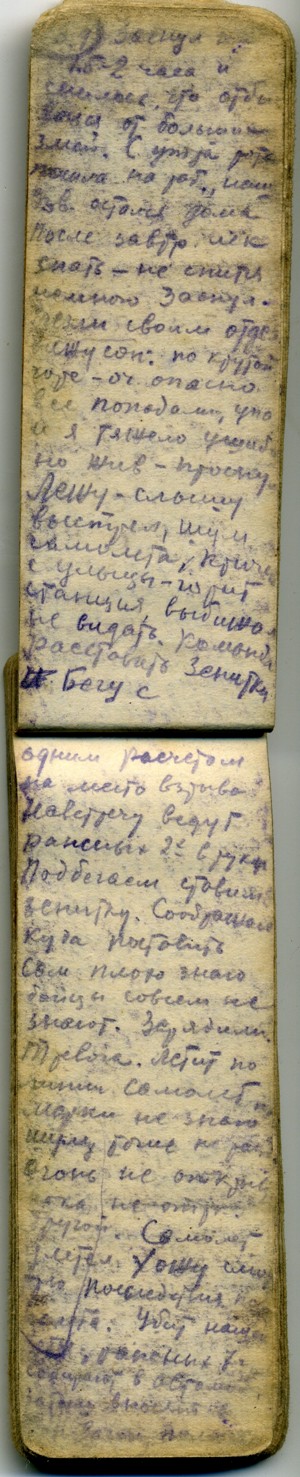 Заснул
1,5-2 часа и
снилось, что отби
вался от больших
змей. С утра рота
пошла на раб., наш
взв. остался дома
После завтр. лёг
спать - не спится
немного заснул.
своим отде
вижу сон: по крутой
горе - оч. опасно
все попадали, упа
и я тяжело ушиб
но жив - просну
Лежу - слышу
выстрел, шум
самолета, кричат
с улицы - горит
станция, выбежал
не видать. Команда
расставить зенитки
Бегу с
одним расчетом
на место взрыва
Навстречу ведут
раненых 2х в руки
Подбегаем ставим
зенитку. Соображаем
куда поставить
Сам плохо знаю
бойцы совсем не
знают. Зарядили.
Тревога. Летит по
линии самолет
марки не знаю
огонь не открыв
пока не откр.
другой. Самолет
улетел. Ухожу
последствия
Убит
раненых 7
собирают